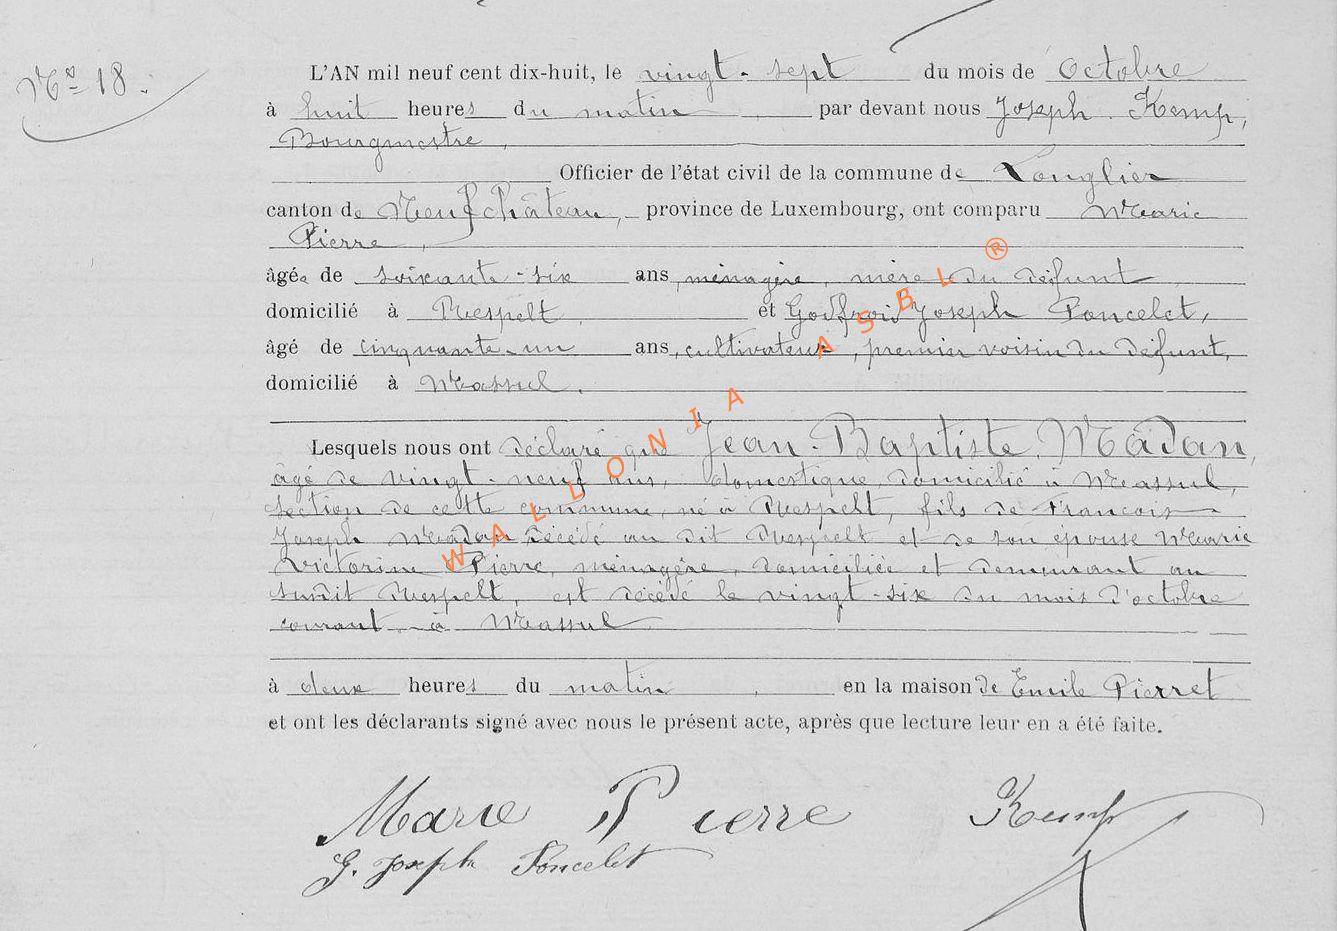 N° 18.
L'AN mil neuf cent dix-huit, le vingt-sept du mois de Octobre
à huit heures du matin par devant nous Joseph Kemp,
Bourgmestre,
Officier de l'état civil de la commune de Longlier
canton de Neufchâteau, province de Luxembourg, ont comparu Marie
Pierre,
âgée de soixante-six ans, ménagère, mère du défunt
domicilié à Respelt, et Godfroid Joseph Poncelet,
âgé de cinquante-un ans, cultivateur, premier voisin du défunt,
domicilié à Massul.
Lesquels nous ont déclaré que Jean-Baptiste Mâdan,
âgé de vingt-neuf ans, domestique, domicilié à Massul,
section de cette commune, né à Respelt, fils de François
Joseph Mâdan décédé au dit Respelt et de son épouse Marie
Victorine Pierre, ménagère, domiciliée et demeurant au
susdit Respelt, est décédé le vingt-six du mois d'octobre
courant, à Massul
à deux heures du matin, en la maison de Emile Pierret
et ont les déclarants signé avec nous le présent acte, après que lecture leur en a été faite.
Marie Pierre Kemp
G. Joseph Poncelet
WALLONIA ASBL ®